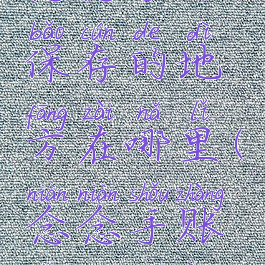 bǎo cún de dì
保存的地
fāng zài nǎ lǐ
方在哪里(
niàn niàn shǒu zhàng
念念手账